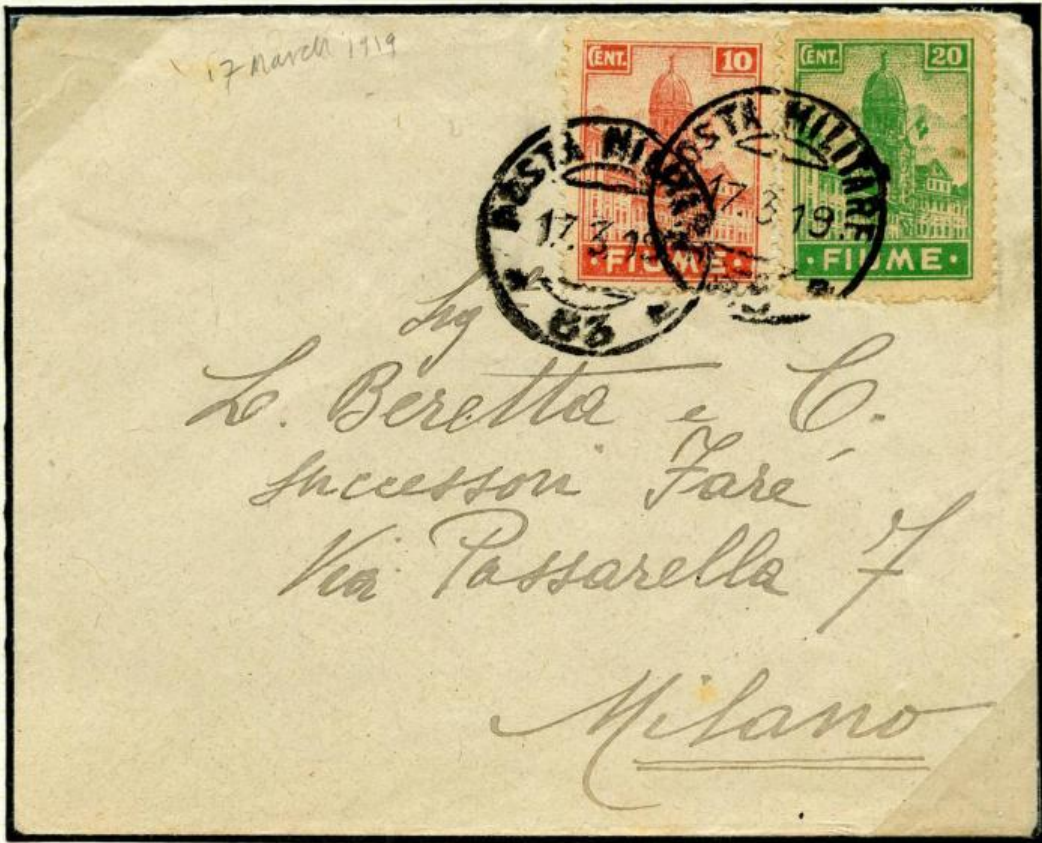 17 March 1919
CENT. 10
FIUME
CENT. 20
FIUME
POSTA MILITARE
17.3.19
83
POSTA MILITARE
17.3.19
L. Beretta e C.
successori Faré
Via Passarella 7
Milano